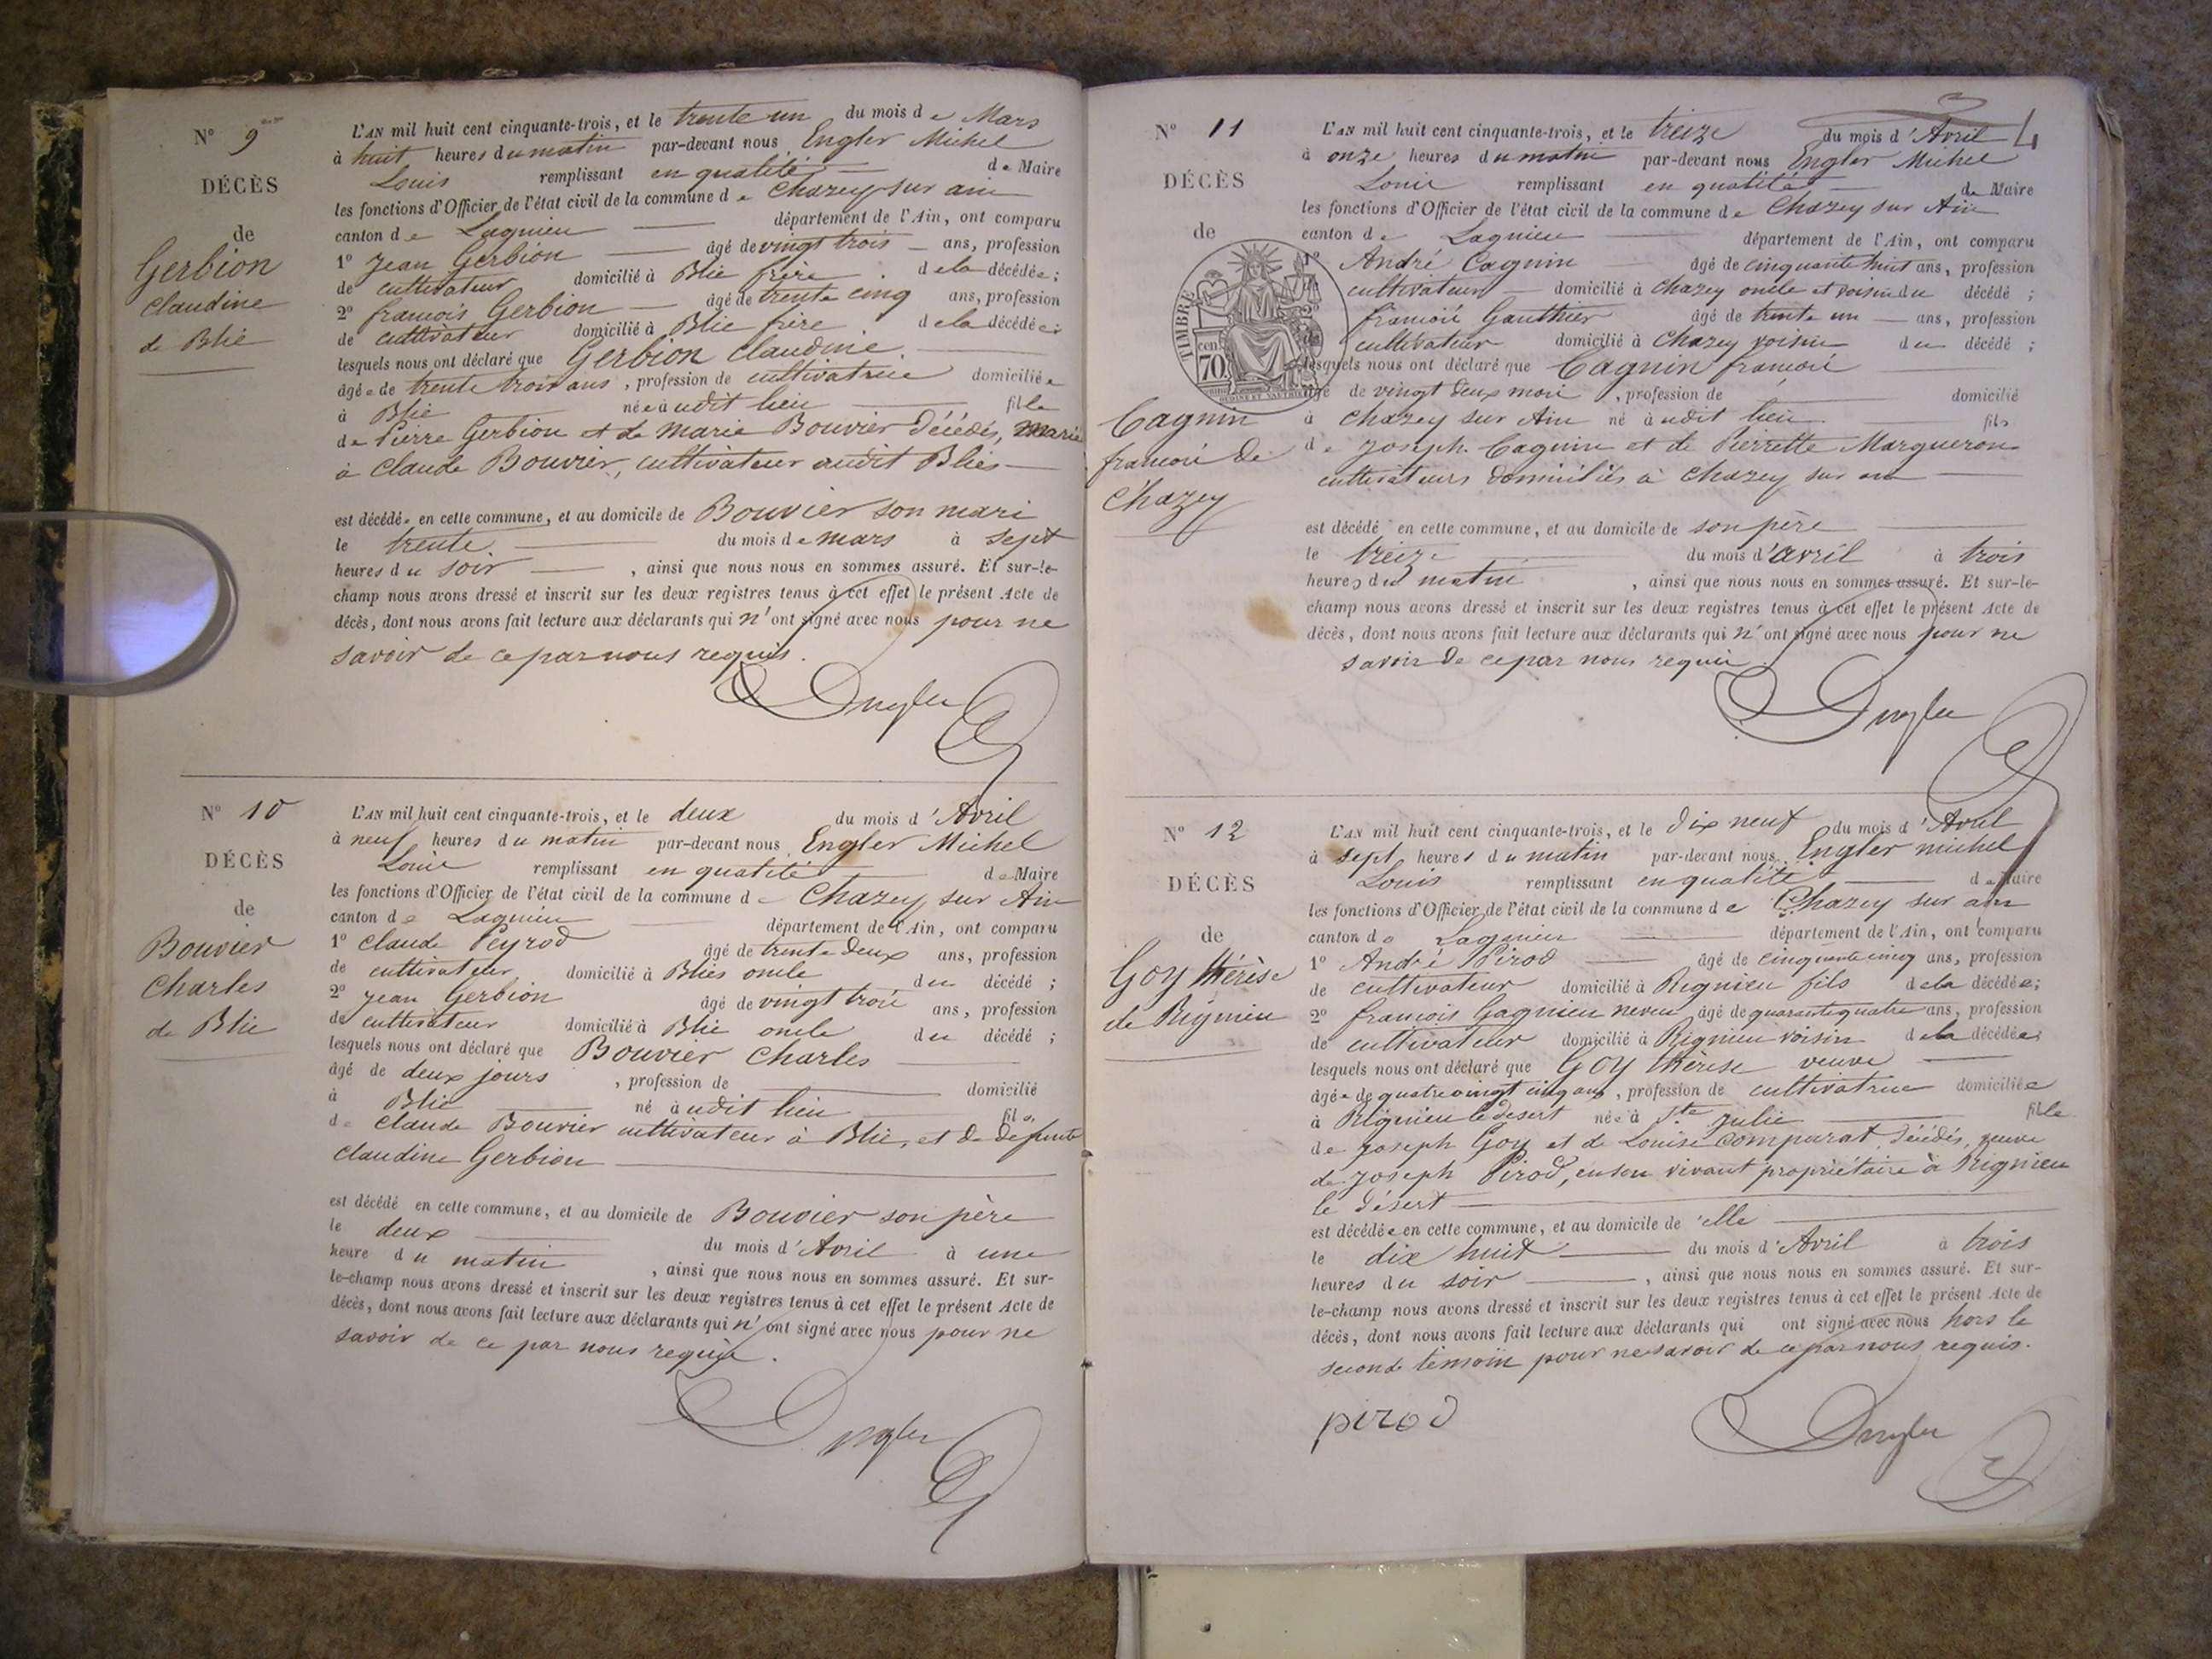 N° 9
DÉCÈS
de
Gerbion
Claudine
de Blie
L'AN mil huit cent cinquante-trois, et le trente un du mois de Mars
à huit heures du matin par-devant nous Engler Michel
Louis remplissant en qualité de Maire
les fonctions d'Officier de l'état civil de la commune de Chazey sur ain
canton de Lagnieu département de l'Ain, ont comparu
1° Jean Gerbion âgé de vingt trois ans, profession
de cultivateur domicilié à Blie frère de la décédée ;
2° francois Gerbion âgé de trente cinq ans, profession
de cultivateur domicilié à Blie frère de la décédée ;
lesquels nous ont déclaré que Gerbion Claudine
âgée de trente trois ans, profession de cultivatrice domiciliée
à Blie née audit lieu fille
de Pierre Gerbion et de Marie Bouvier décédés, marié
à Claude Bouvier, cultivateur audit Blies
est décédée en cette commune, et au domicile de Bouvier son mari
le trente du mois de mars à sept
heures du soir, ainsi que nous nous en sommes assuré. Et sur-le-
champ nous avons dressé et inscrit sur les deux registres tenus à cet effet le présent Acte de
décès, dont nous avons fait lecture aux déclarants qui n'ont signé avec nous pour ne
savoir de ce par nous requis.
Engler
N° 10
DÉCÈS
de
Bouvier
Charles
de Blie
L'AN mil huit cent cinquante-trois, et le deux du mois d'Avril
à neuf heures du matin par-devant nous Engler Michel
Louis remplissant en qualité de Maire
les fonctions d'Officier de l'état civil de la commune de Chazey sur Ain
canton de Lagnieu département de l'Ain, ont comparu
1° Claude Peyrod âgé de trente deux ans, profession
de cultivateur domicilié à Blies oncle du décédé ;
2° Jean Gerbion âgé de vingt trois ans, profession
de cultivateur domicilié à Blie oncle du décédé ;
lesquels nous ont déclaré que Bouvier Charles
âgé de deux jours, profession de domicilié
à Blie né audit lieu fils
de Claude Bouvier cultivateur à Blie, et de defunte
Claudine Gerbion
est décédé en cette commune, et au domicile de Bouvier son père
le deux du mois d'Avril à une
heure du matin, ainsi que nous nous en sommes assuré. Et sur-
le-champ nous avons dressé et inscrit sur les deux registres tenus à cet effet le présent Acte de
décès, dont nous avons fait lecture aux déclarants qui n'ont signé avec nous pour ne
savoir de ce par nous requis.
Engler
4
N° 11
DÉCÈS
de
TIMBRE
cen
70
Cagnin
francois de
Chazey
L'AN mil huit cent cinquante-trois, et le treize du mois d'Avril
à onze heures du matin par-devant nous Engler Michel
Louis remplissant en qualité de Maire
les fonctions d'Officier de l'état civil de la commune de Chazey sur Ain
canton de Lagnieu département de l'Ain, ont comparu
1° André Cagnin âgé de cinquante huit ans, profession
cultivateur domicilié à Chazey oncle et voisin du décédé ;
francois Gauthier âgé de trente un ans, profession
cultivateur domicilié à Chazey voisin du décédé ;
lesquels nous ont déclaré que Cagnin francois
âgé de vingt deux mois, profession de domicilié
à Chazey sur Ain né audit lieu fils
de Joseph Cagnin et de Pierrette Margueron
cultivateurs domiciliés à Chazey sur ain
est décédé en cette commune, et au domicile de son père
le treize du mois d'avril à trois
heures du matin, ainsi que nous nous en sommes assuré. Et sur-le-
champ nous avons dressé et inscrit sur les deux registres tenus à cet effet le présent Acte de
décès, dont nous avons fait lecture aux déclarants qui n'ont signé avec nous pour ne
savoir de ce par nous requis
Engler
N° 12
DÉCÈS
de
Goy thérèse
de Rignieu
L'AN mil huit cent cinquante-trois, et le dix neuf du mois d'Avril
à sept heures du matin par-devant nous Engler michel
Louis remplissant en qualité de Maire
les fonctions d'Officier de l'état civil de la commune de Chazey sur ain
canton de Lagnieu département de l'Ain, ont comparu
1° André Pirod âgé de cinquante cinq ans, profession
de cultivateur domicilié à Rignieu fils de la décédée ;
2° francois Gagnieu neveu âgé de quarante quatre ans, profession
de cultivateur domicilié à Rignieu voisin de la décédée
lesquels nous ont déclaré que Goy thérèse veuve
âgée de quatre vingt cinq ans, profession de cultivatrice domiciliée
à Rignieu le desert née à Ste Julie fille
de Joseph Goy et de Louise Comparat décédés, veuve
de Joseph Pirod, en son vivant propriétaire à Rignieu
le désert
est décédée en cette commune, et au domicile de elle
le dix huit du mois d'Avril à trois
heures du soir, ainsi que nous nous en sommes assuré. Et sur-
le-champ nous avons dressé et inscrit sur les deux registres tenus à cet effet le présent Acte de
décès, dont nous avons fait lecture aux déclarants qui ont signé avec nous hors le
second témoin pour ne savoir de ce par nous requis.
pirod
Engler